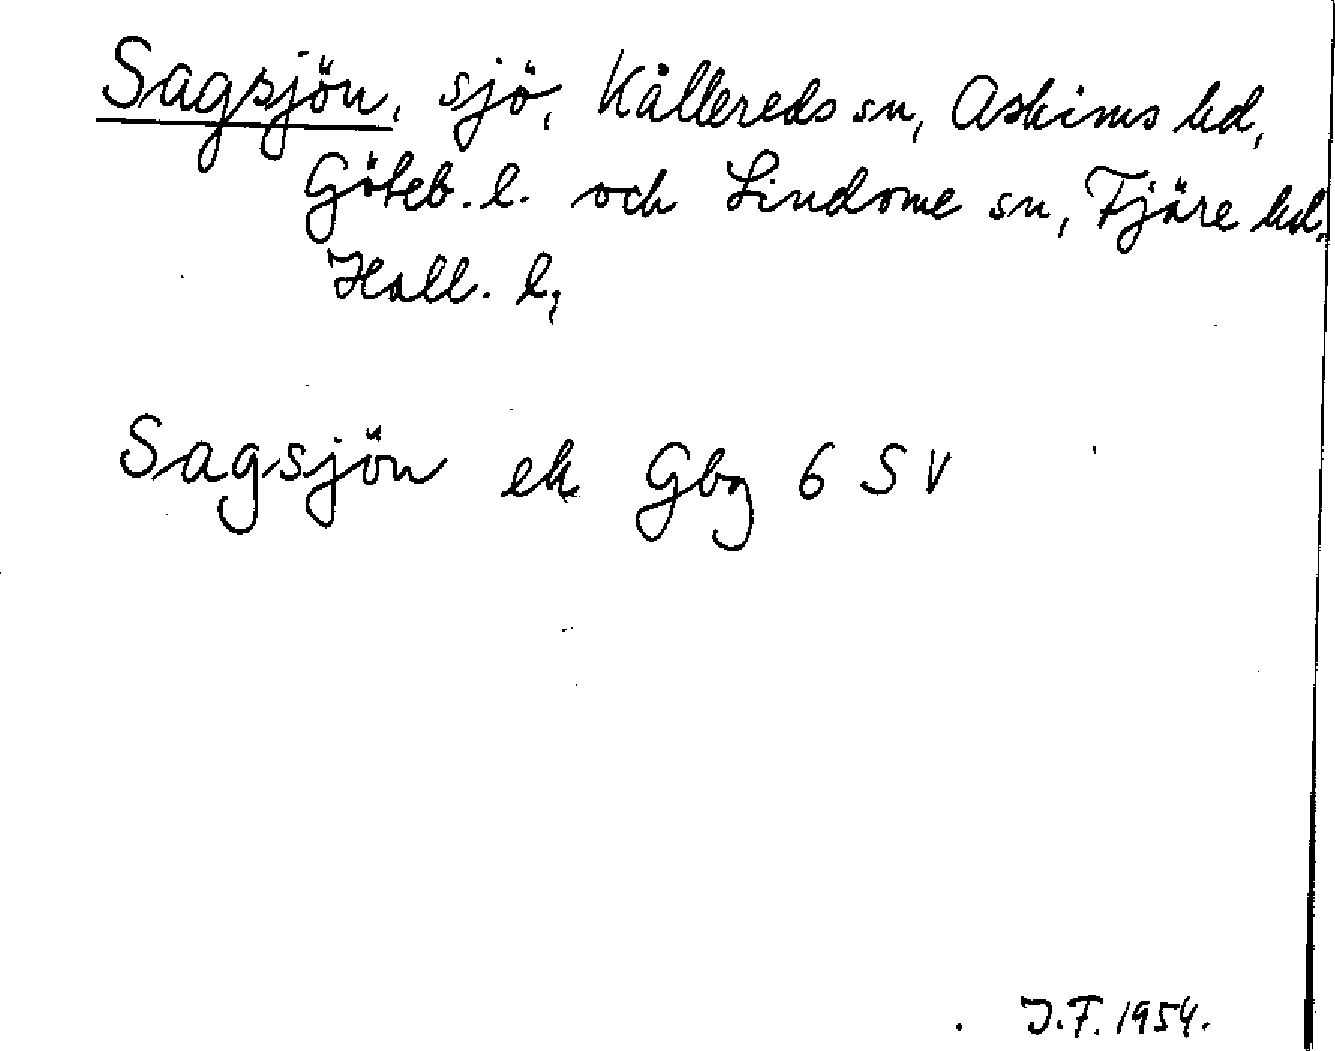 Sagsjön, sjö, Kållereds sn, Askims hd,
Göteb. l. och Lindome sn, Fjäre hd.
Hall. l,
Sagsjön ek Gbg 6 SV
J.F. 1954.